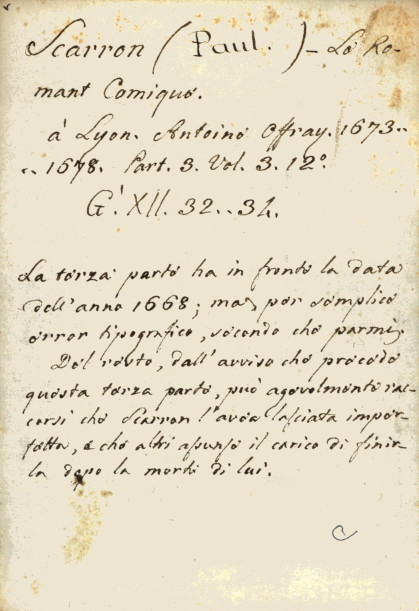 Scarron (Paul.) – Le Ro-
mant Comique.
à Lyon. Antoine Offray. 1673..
..1678. Part. 3. Vol. 3. 12.º
G. XII. 32..34.
La terza parte ha in fronte la data
dell'anno 1668; ma, per semplice
error tipografico, secondo che parmi.
Del resto, dall'avviso che precede
questa terza parte, può agevolmente rac-
corsi che Scarron l'avea lasciata imper-
fetta, e che altri assunse il carico di finir-
la dopo la morte di lui.